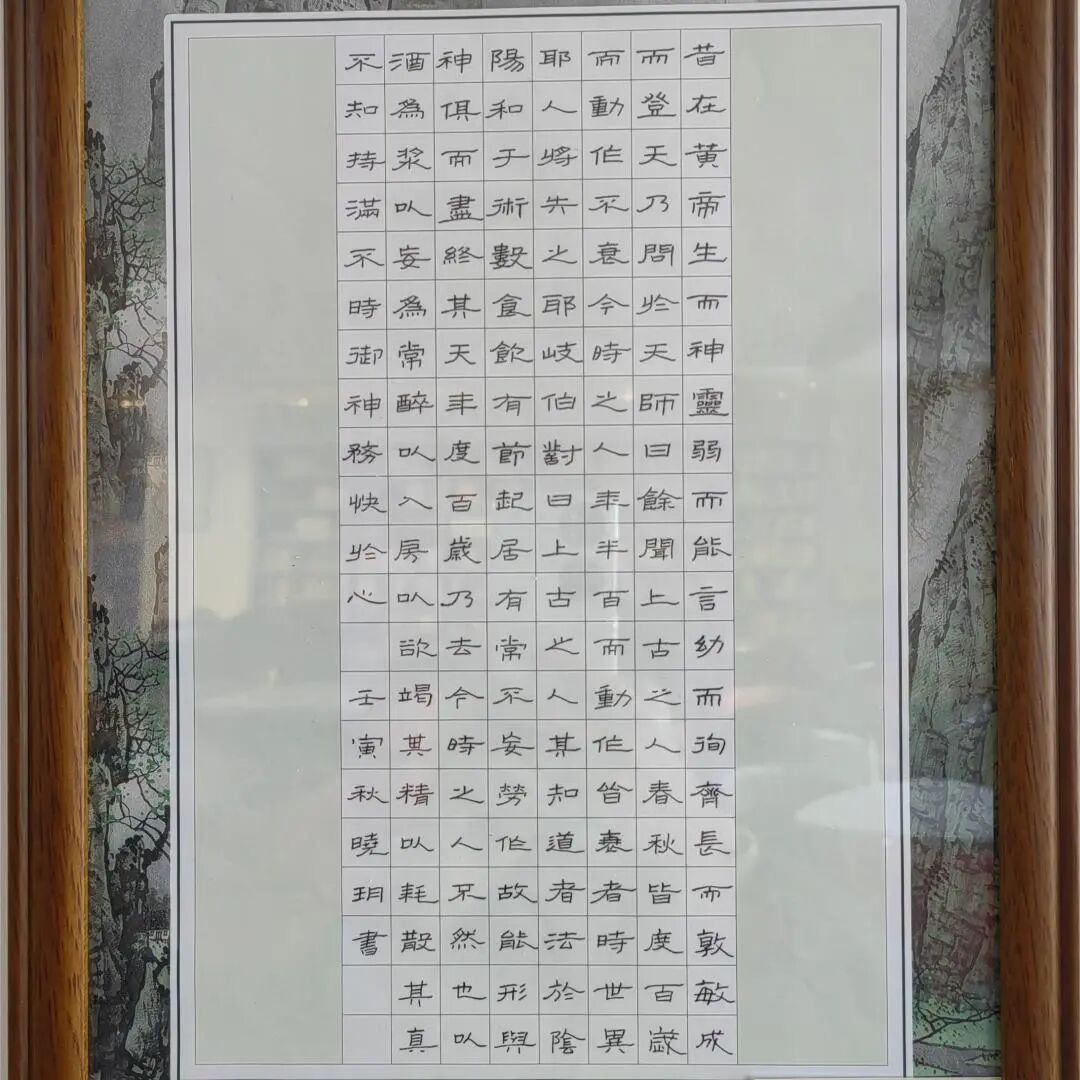 昔在黃帝生而神靈弱而能言幼而徇齊長而敦敏成
而登天乃問於天師曰餘聞上古之人春秋皆度百歲
而動作不衰今時之人年半百而動作皆衰者時世異
耶人將失之耶岐伯對曰上古之人其知道者法於陰
陽和于術數食飲有節起居有常不妄勞作故能形與
神俱而盡終其天年度百歲乃去今時之人不然也以
酒為漿以妄為常醉以入房以欲竭其精以耗散其真
不知持滿不時御神務快於心 壬寅秋曉玥書